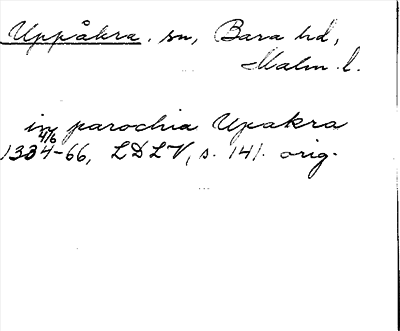 Uppåkra. sn, Bara hd,
Malm. l.
in parochia Upakra
1334 4/6-66, LDLV, s. 141. orig.